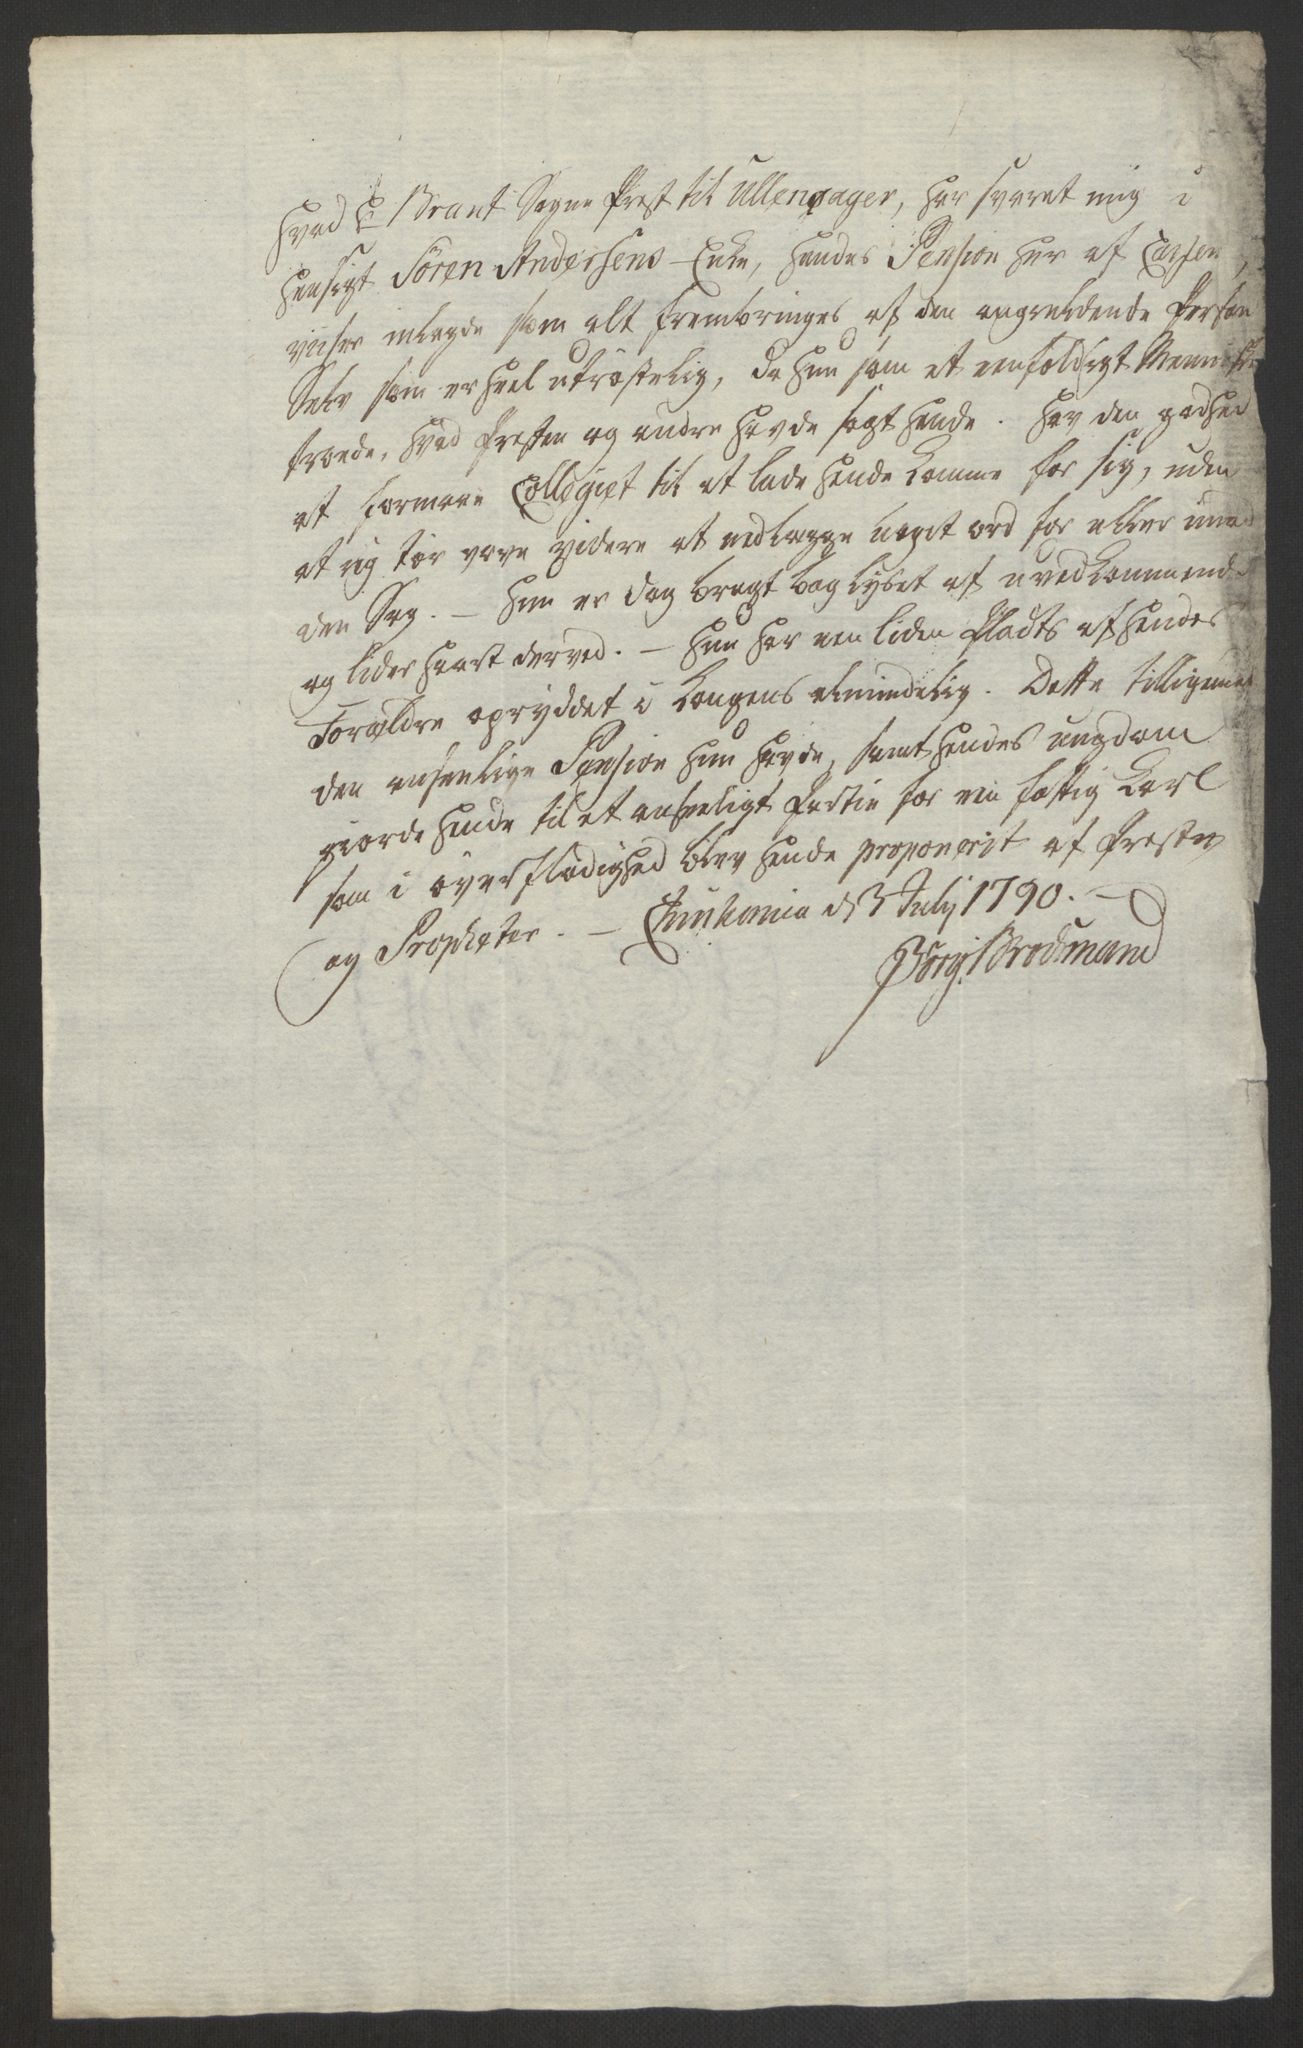 Hvad Hr Brant Sogne Prest til Ullensager, har svaret mig i
Hensigt Sören Andersens Enke, hendes Pension her af Cassen,
viiser inlagde som alt frembringes af den angieldende Person
Selv som er heel utröstelig, da hun som et eenfoldigt Menniske
troede, hvad Presten og andre havde sagt hende. Hav den godhed
at formaae Collegiet til at lade hende komme for sig, uden
at ieg tör vove videre at nedlægge noget ord for eller imod
den Sag. – Hun er dog bragt bag lyset af uvedkommende
og lider haart derved. – Hun har een liden Plads af hendes
Forældre opryddet i Kongens almindelig. Dette tilligemed
den anseelige Pension hun havde, samt hendes ungdom
giorde hende til et anseeligt Partie for een fattig Karl
som i overflödighed blev hende proponerit af Presten
og Propheter. – Christiania d 3 July 1790. –
Börg Brockmand